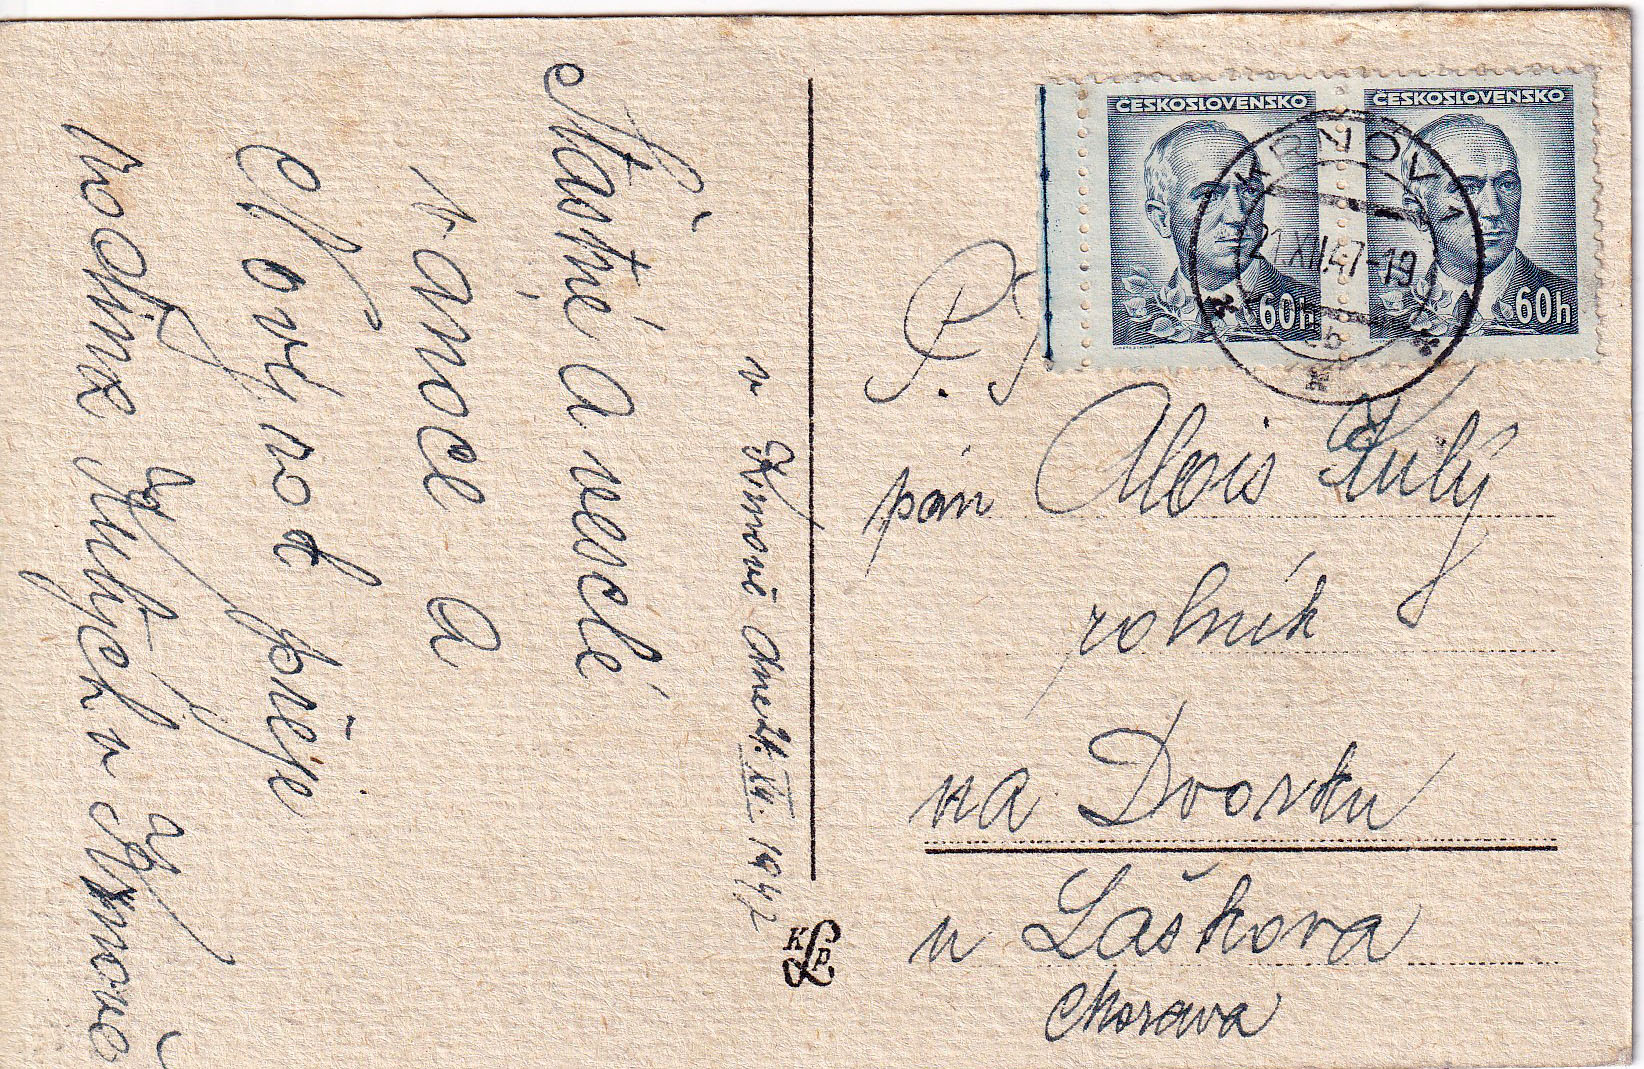 v Krnově dne 21. XII. 1947
Šťastné a veselé
vánoce a
Nový rok přeje
rodina Kubých v Krnově
ČESKOSLOVENSKO
60h
ČESKOSLOVENSKO
60h
KRNOV 1
21.XII.47-19
P. T.
pán Alois Kulý
rolník
na Dvorku
u Laškova
Morava
K
P